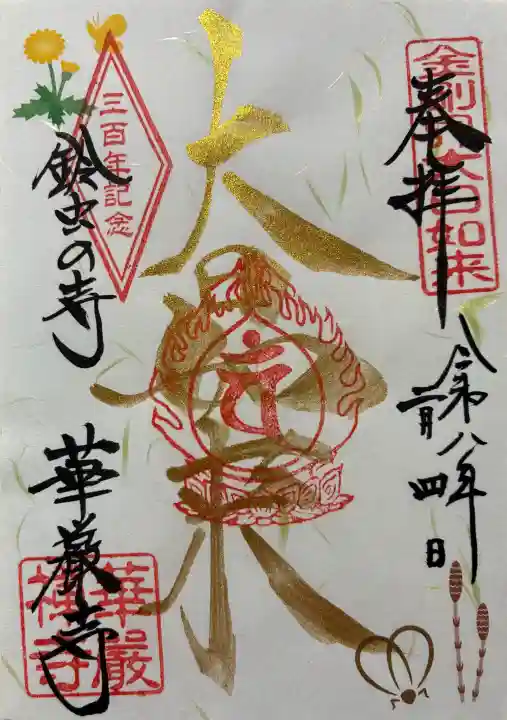 奉拝
金剛界大日如来
令和八年
二月四日
大日如来
三百年記念
鈴虫の寺
華厳寺
華厳禅寺